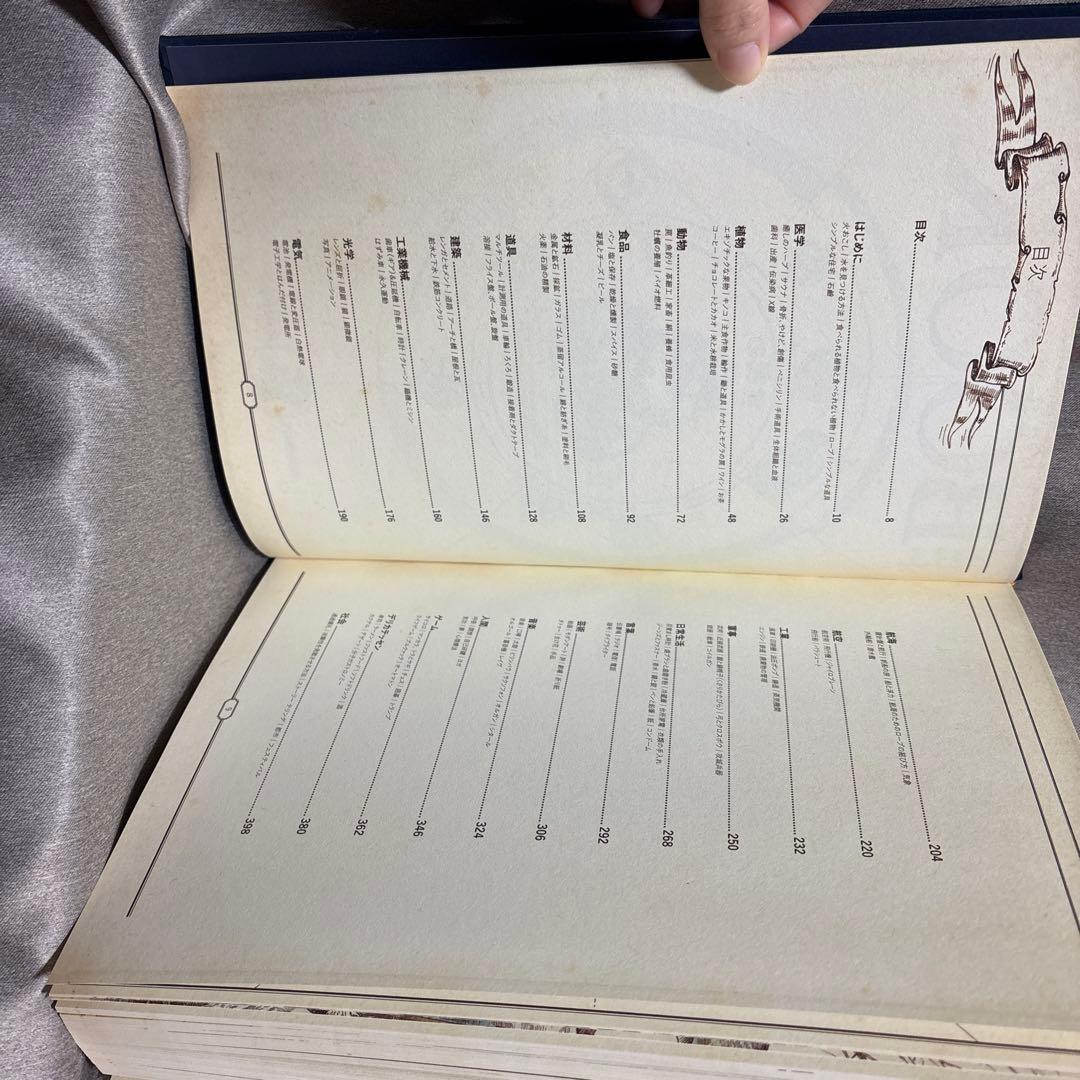 目次
目次 8
はじめに 10
火おこし｜水を見つける方法｜食べられる植物と食べられない植物｜ロープ｜シンプルな道具
シンプルな住宅｜石鹸
医学 26
癒しのハーブ｜サウナ｜骨折、やけど、創傷｜ペニシリン｜手術道具｜生体組織と血液
歯科｜出産｜伝染病｜X線
植物 48
エキゾチックな果物｜キノコ｜主食作物｜輪作｜鋤と道具｜かかしとモグラの罠｜ワイン｜お茶
コーヒー｜チョコレートとカカオ｜米と水耕栽培
動物 72
罠｜魚釣り｜革細工｜家畜｜絹｜養蜂｜食用昆虫
牡蠣の養殖｜バイオ燃料
食品 92
パン｜塩と保存｜乾燥と燻製｜スパイス｜砂糖
凝乳とチーズ｜ビール
材料 108
金属と鉱石｜採鉱｜ガラス｜ゴム｜蒸留アルコール｜綿と紡ぎ糸｜塗料と刷毛
火薬｜石油の精製
道具 128
マルチツール｜計測用の道具｜車輪｜ろくろ｜鍛造｜接着剤とダクトテープ
溶接｜フライス盤、ボール盤、旋盤
建築 146
レンガとセメント｜道路｜アーチと橋｜屋根と瓦
給水と下水｜鉄筋コンクリート
工業機械 160
歯車（ギア）&圧延機｜自転車｜時計｜クレーン｜織機とミシン
はずみ車｜永久運動
光学 176
レンズと屈折｜眼鏡｜鏡｜顕微鏡
写真｜アニメーション
電気 190
電池｜発電機｜電線と変圧器｜白熱電球
電子工学とはんだ付け｜発電所
8
航海 204
気象
航空 220
飛行機｜パラシュート
工業 232
エンジン｜鉄道｜廃棄物の管理
軍事 250
弓とクロスボウ｜攻城兵器
日常生活 268
コンドーム
言葉 292
芸術 306
音楽 324
人間 346
ゲーム 362
デリカテッセン 380
社会 398
9